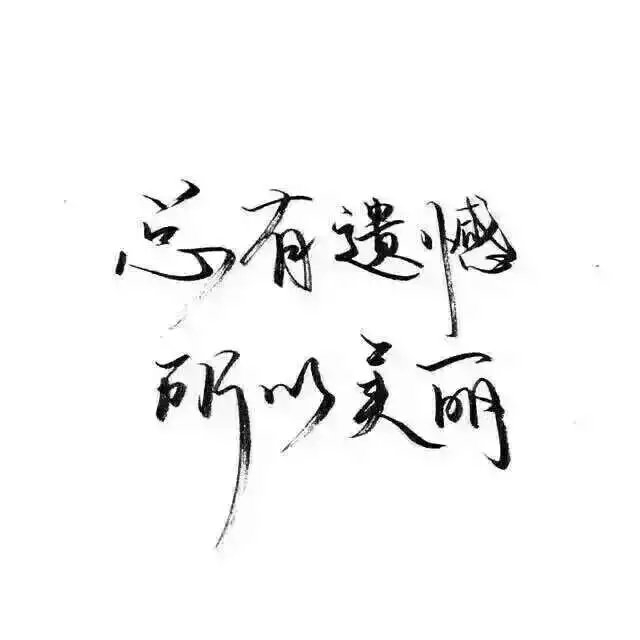 总有遗憾
所以美丽